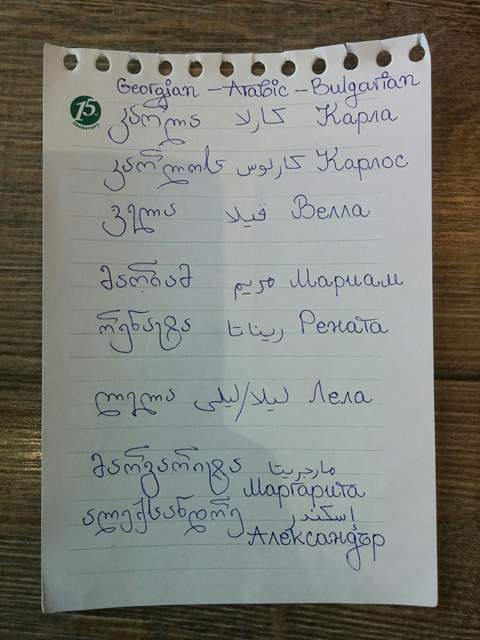 Georgian - Arabic - Bulgarian
15
კარლა كارلا Карла
კარლოს كارلوس Карлос
ველა ڤيلا Велла
მარიამ مريم Мариам
რენატა ريناتا Рената
ლელა ليلا/ليلى Лела
მარგარიტა مارجريتا
Маргарита
ალექსანდრე إسكندر
Александър